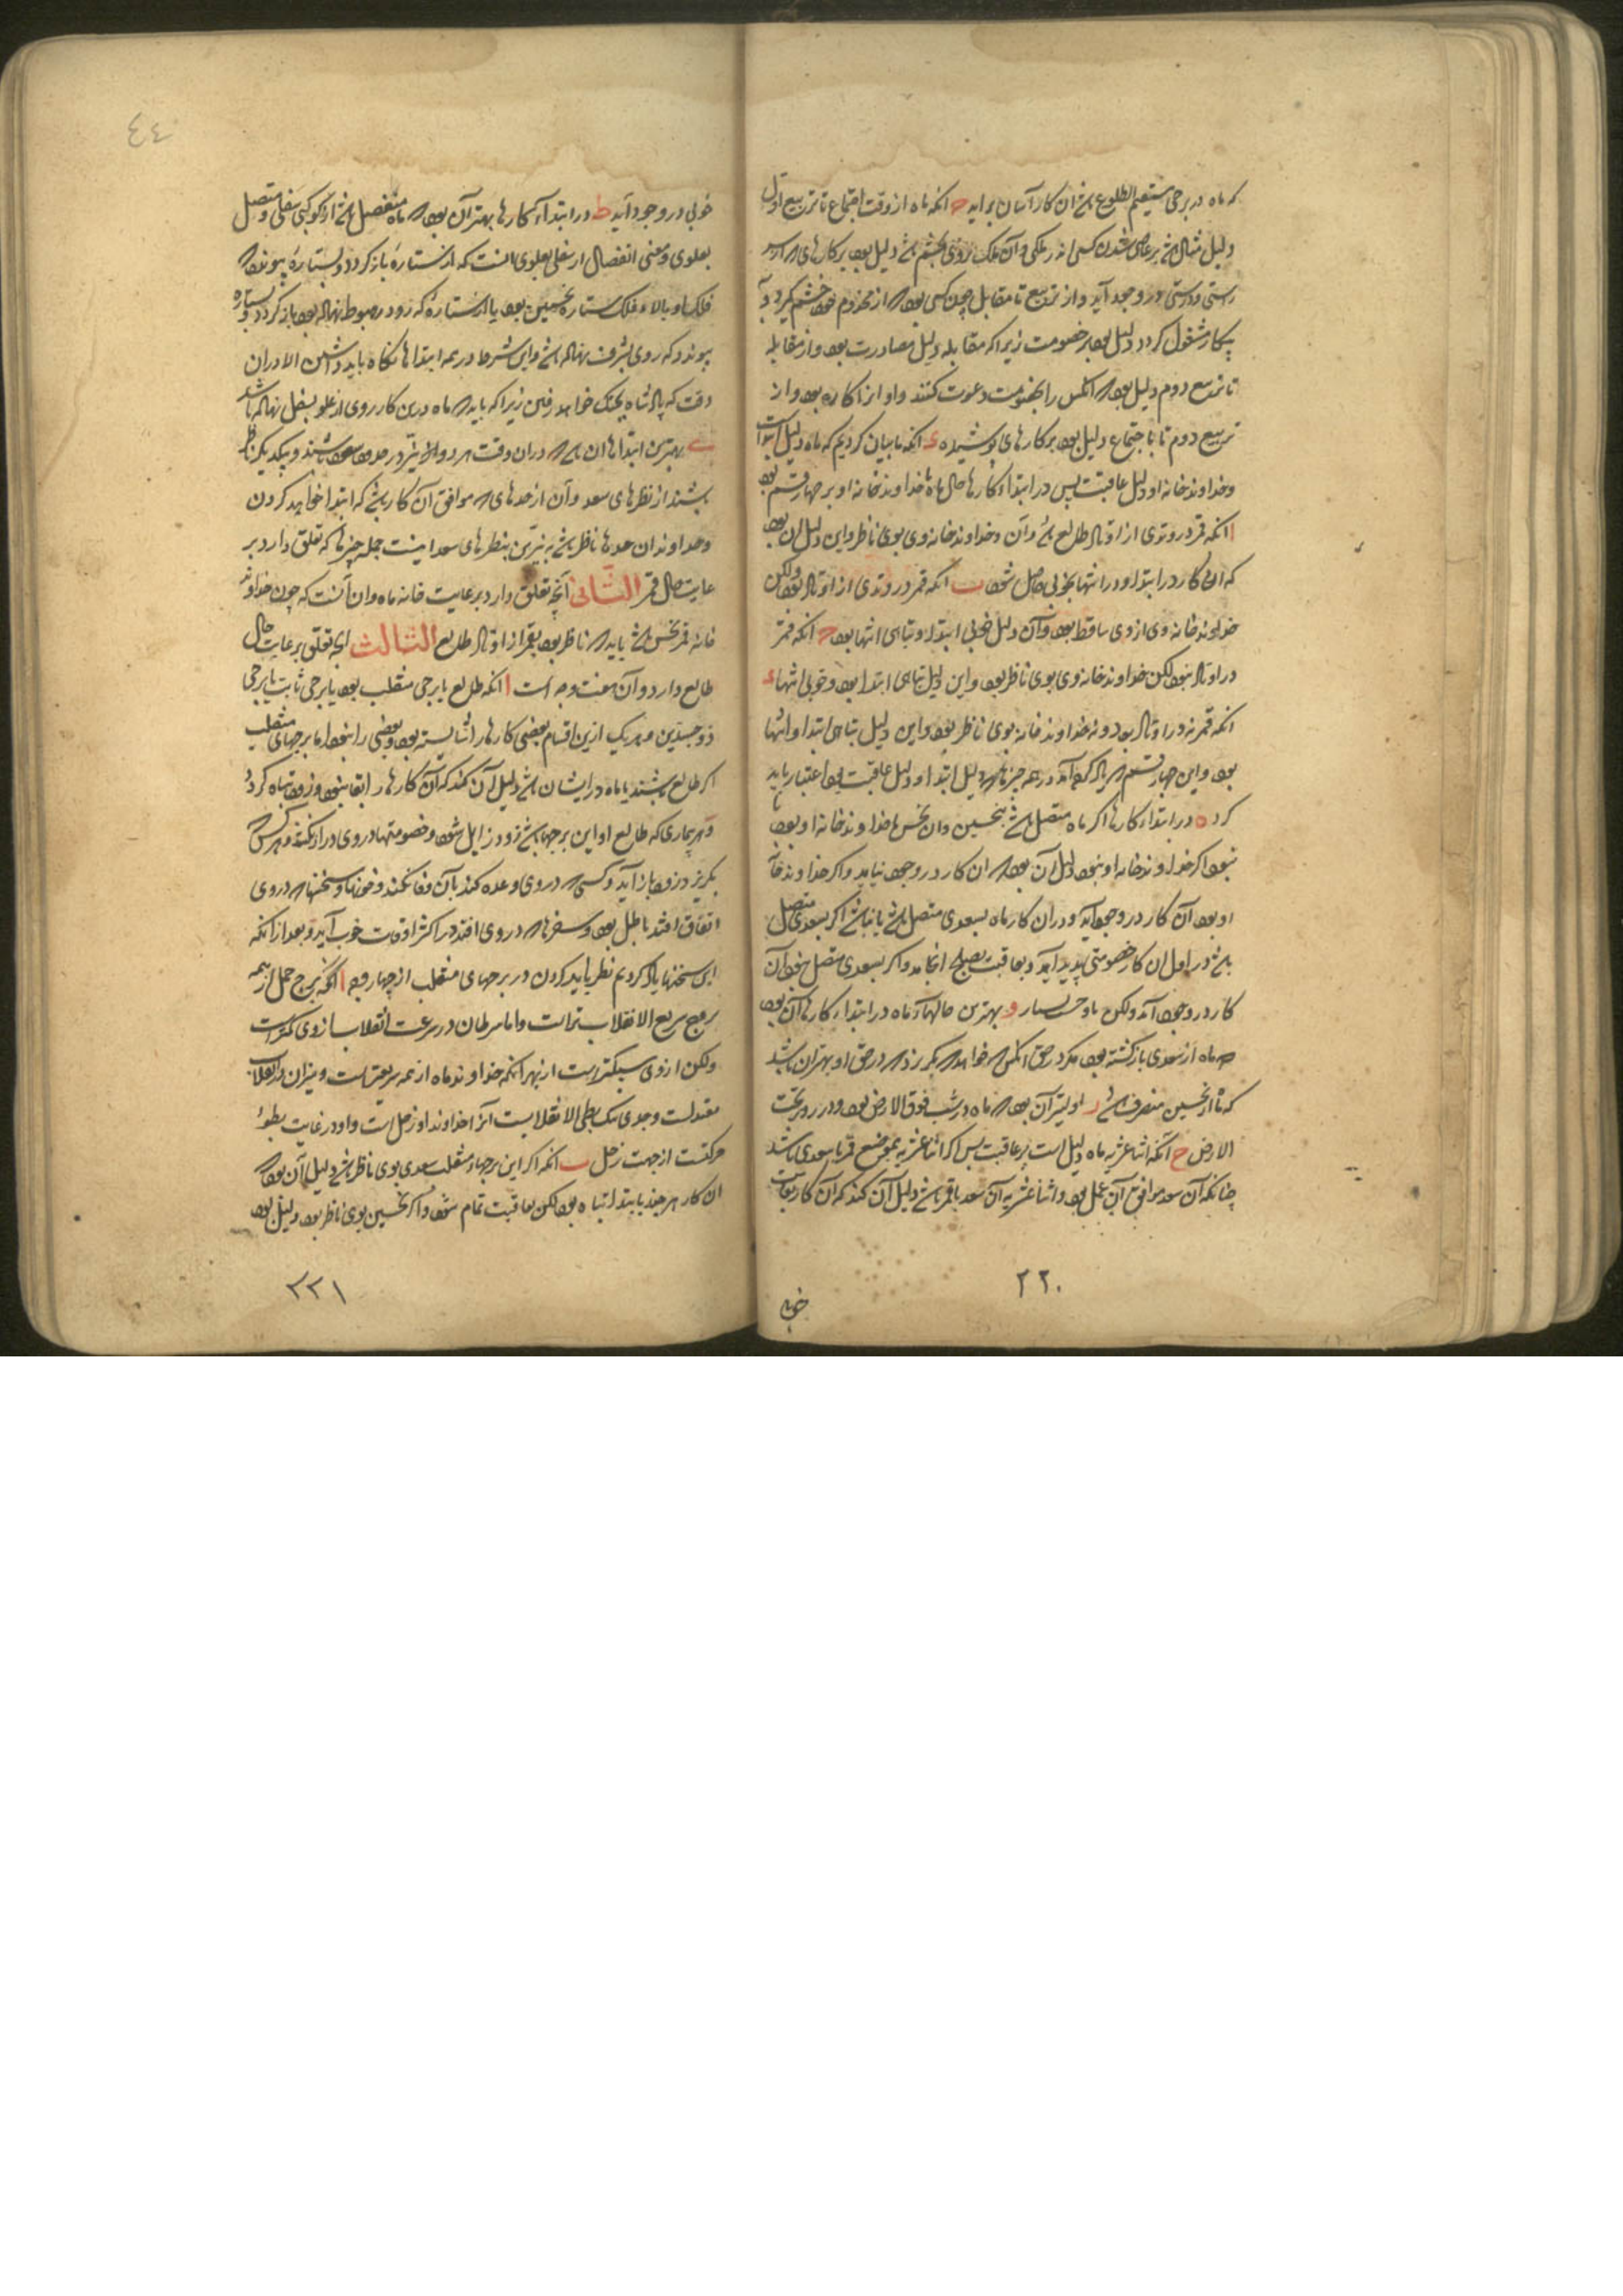 که ماه در برجی مستقیم الطلوع باشد ان کار آسان براید ح انکه ماه از وقت اجتماع تا تربیع اول
دلیل
راستی و درستی در وجود آید و از تربیع تا مقابل چون کسی بود که از مخدوم خود خشم گیرد و
بیکار مشغول کردد دلیل بود بر خصومت زیرا که مقابله دلیل مصادرت بود و از مقابله
تا تربیع دوم دلیل بود که انکس را بخصومت دعوت کنند و او ازا کاره بود و از
تربیع دوم تا باجتماع دلیل بود بر کارهای پوشیده د انکه ما بیان کردیم که ماه دلیل ابتداست
و خداوند خانه او دلیل عاقبت پس در ابتداء کارها حال ماه با خداوند خانه او بر چهار قسم بود
ا انکه قمر در وتدی از اوتاد طالع باشد وآن و خداوند خانه وی بوی ناظر و این دلیل ان بود
که ان کار در ابتدا و در انتها بخوبی حاصل شود ب انکه قمر در وتدی از اوتاد بود ولکن
خداوند خانه وی از وی ساقط بود وآن دلیل خوبی ابتدا و تباهی انتها بود ح انکه قمر
در اوتاد نبود لکن خداوند خانه وی بوی ناظر بود و این دلیل تباهی ابتدا بود و خوبی انتها د
انکه قمر نه در اوتاد بود و نه خداوند خانه بوی ناظر بود و این دلیل تباهی ابتدا و انتها
بود و این چهار قسم که یاد کرده آمد در همه چیزها که دلیل ابتدا و دلیل عاقبت بود اعتبار باید
کرد ه در ابتداء کارها اکر ماه متصل باشد بنحسین وان نحس یا خداوند خانه او بود یا
نبود اکر خداوند خانه او نبود دلیل آن بود که ان کار در وجود نیاید و اکر خداوند خانه
او بود آن کار در وجود آید و در ان کار ماه بسعدی متصل باشد یا نباشد اکر بسعدی متصل
باشد در اول ان کار خصومتی پدید آید و بعاقبت بصلح انجامد و اکر بسعدی متصل نبود آن
کار در وجود آید ولکن با و بهترین حالهاء ماه در ابتداء کارها آن بود
که ماه از سعدی بازکشته بود مکر در حق انکس که خواهد که بکریزد که در حق او بهتر ان باشد
که ماه از نحسین منصرف باشد ر اولیتر آن بود که ماه در شب فوق الارض بود و در روز تحت
الارض ح آنکه اثنا عشریه ماه دلیل است بر عاقبت پس اکر اثنا عشریه بموضع قمر با سعدی باشد
چنانکه آن سعد موافق آن عمل بود و اثنا عشریه آن سعد با قمر باشد دلیل آن کند که آن کار بعاقبت
۲۲۰
خوبی
٤٤
خوبی در وجود آید ط در ابتداء کارها بهتر آن بود که ماه منفصل باشد از کوکبی سفلی و متصل
بعلوی و معنی انفصال از سفلی بعلوی انست که از ستاره باز کردد و بستاره پیوندد که
فلک او بالاء فلک ستاره نخستین بود یا از ستاره که رو در هبوط نهاده بود باز کردد و بستاره
پیوندد که روی بشرف نهاده باشد و این شرط در همه ابتداها نکاه باید داشتن الا در ان
وقت که پادشاه بجنک خواهد رفتن زیرا که باید که ماه درین کار روی از علو بسفل نهاده باشد
ی بهترین ابتداها ان باشد که در ان وقت هر دو نیّر در حدود سعود باشند و بیکدیکر ناظر
باشند از نظرهای سعد و آن از حدهای که موافق آن کار باشد که ابتدا خواهد کردن
و خداوندان حدها ناظر باشد به نیّرین بنظرهای سعد اینست جمله چیزها که تعلق دارد بر
عایت حال قمر الثانی آنچه تعلق دارد برعایت خانه ماه وان آنست که چون خداوند
خانه قمر نحس باشد باید که ناظر بود بقمر از اوتاد طالع الثالث انچه تعلق برعایت حال
طالع دارد و آن هفت وجه است ا انکه طالع یا برجی منقلب بود یا برجی ثابت یا برجی
ذو جسدین و هر یک ازین اقسام بعضی کارها را شایسته بود و بعضی را نبود اما برجهای منقلب
اکر طالع باشند یا ماه در ایشان باشد دلیل آن کند که آن کارها را بقا نبود و زود تباه کردد
و هر بیماری که طالع او این برجها باشد زود زایل شود و خصومتها در وی دراز نکشد و هر کس که
بکریزد زود باز آید و کسی که در وی وعده کند بآن وفا نکند و خوابها و سخنها که در وی
اتفاق افتد باطل بود و سفرها که در وی افتد در اکثر اوقات خوب آید و بعد از انکه
این سخنها یاد کردیم نظر باید کردن در برجهای منقلب از چهار وجه ا انکه برج حمل از همه
بروج سریع الانقلاب تر است و اما سرطان در سرعت انقلاب از وی کمتر است
ولکن از وی سبکتر است از بهر انکه خداوند ماه از همه سریعتر است و میزان در انقلاب
معتدلست و جدی بطی الانقلابست از انکه خداوند او زحل است و او در غایت بطوء
حرکتست از جهت زحل ب انکه اکر این برجهاء منقلب سعدی بوی ناظر باشد دلیل آن بود که
ان کار هر چند بابتدا تباه بود لکن بعاقبت تمام شود و اکر نحسین بوی ناظر بود دلیل بود
۲۲۱